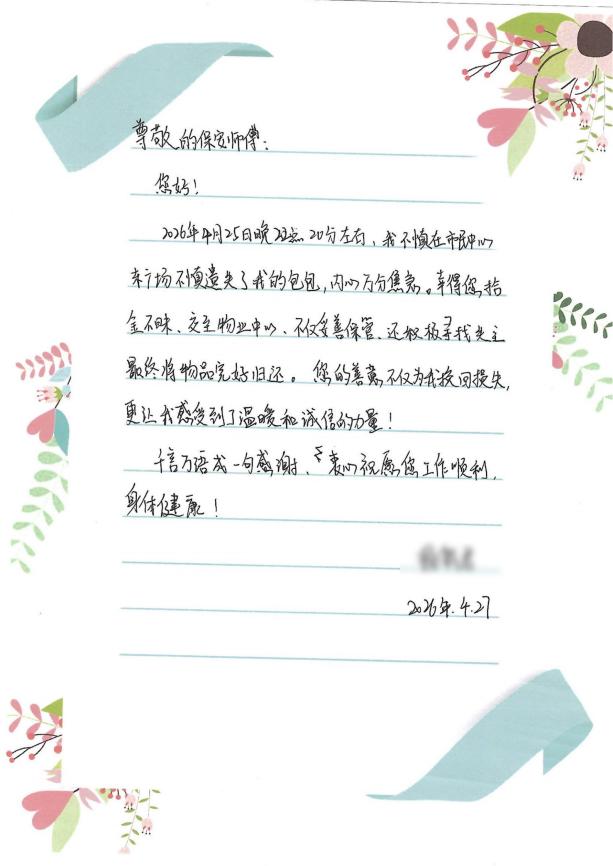 尊敬的保安师傅：
您好！
2026年4月25日晚22点20分左右，我不慎在市民中心
东广场不慎遗失了我的包包，内心万分焦急。幸得您拾
金不昧、交至物业中心、不仅妥善保管、还积极寻找失主
最终将物品完好归还。您的善意不仅为我挽回损失，
更让我感受到了温暖和诚信的力量！
千言万语成一句感谢、衷心祝愿您工作顺利，
身体健康！
2026年.4.27